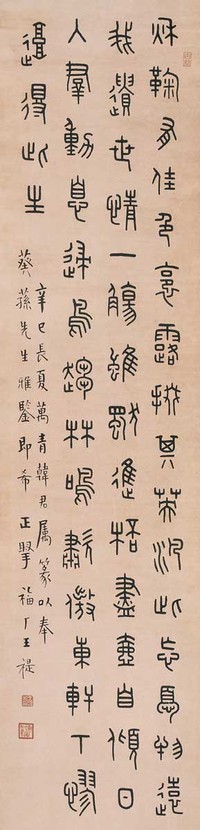 秌鞠有佳色裛露掇其英汎此忘憂物遠
我遺世情一觴雖獨進桮盡壺自傾日
入羣動息歸鳥趨林鳴歗傲東軒丅憀
復得此生
辛巳長夏萬青韓君屬篆以奉
葵蓀先生雅鑒即希正掔福厂王禔